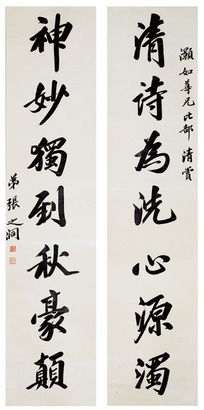 灝如尊兄比部 清賞
清詩為洗心源濁
神妙獨到秋豪顛
弟張之洞